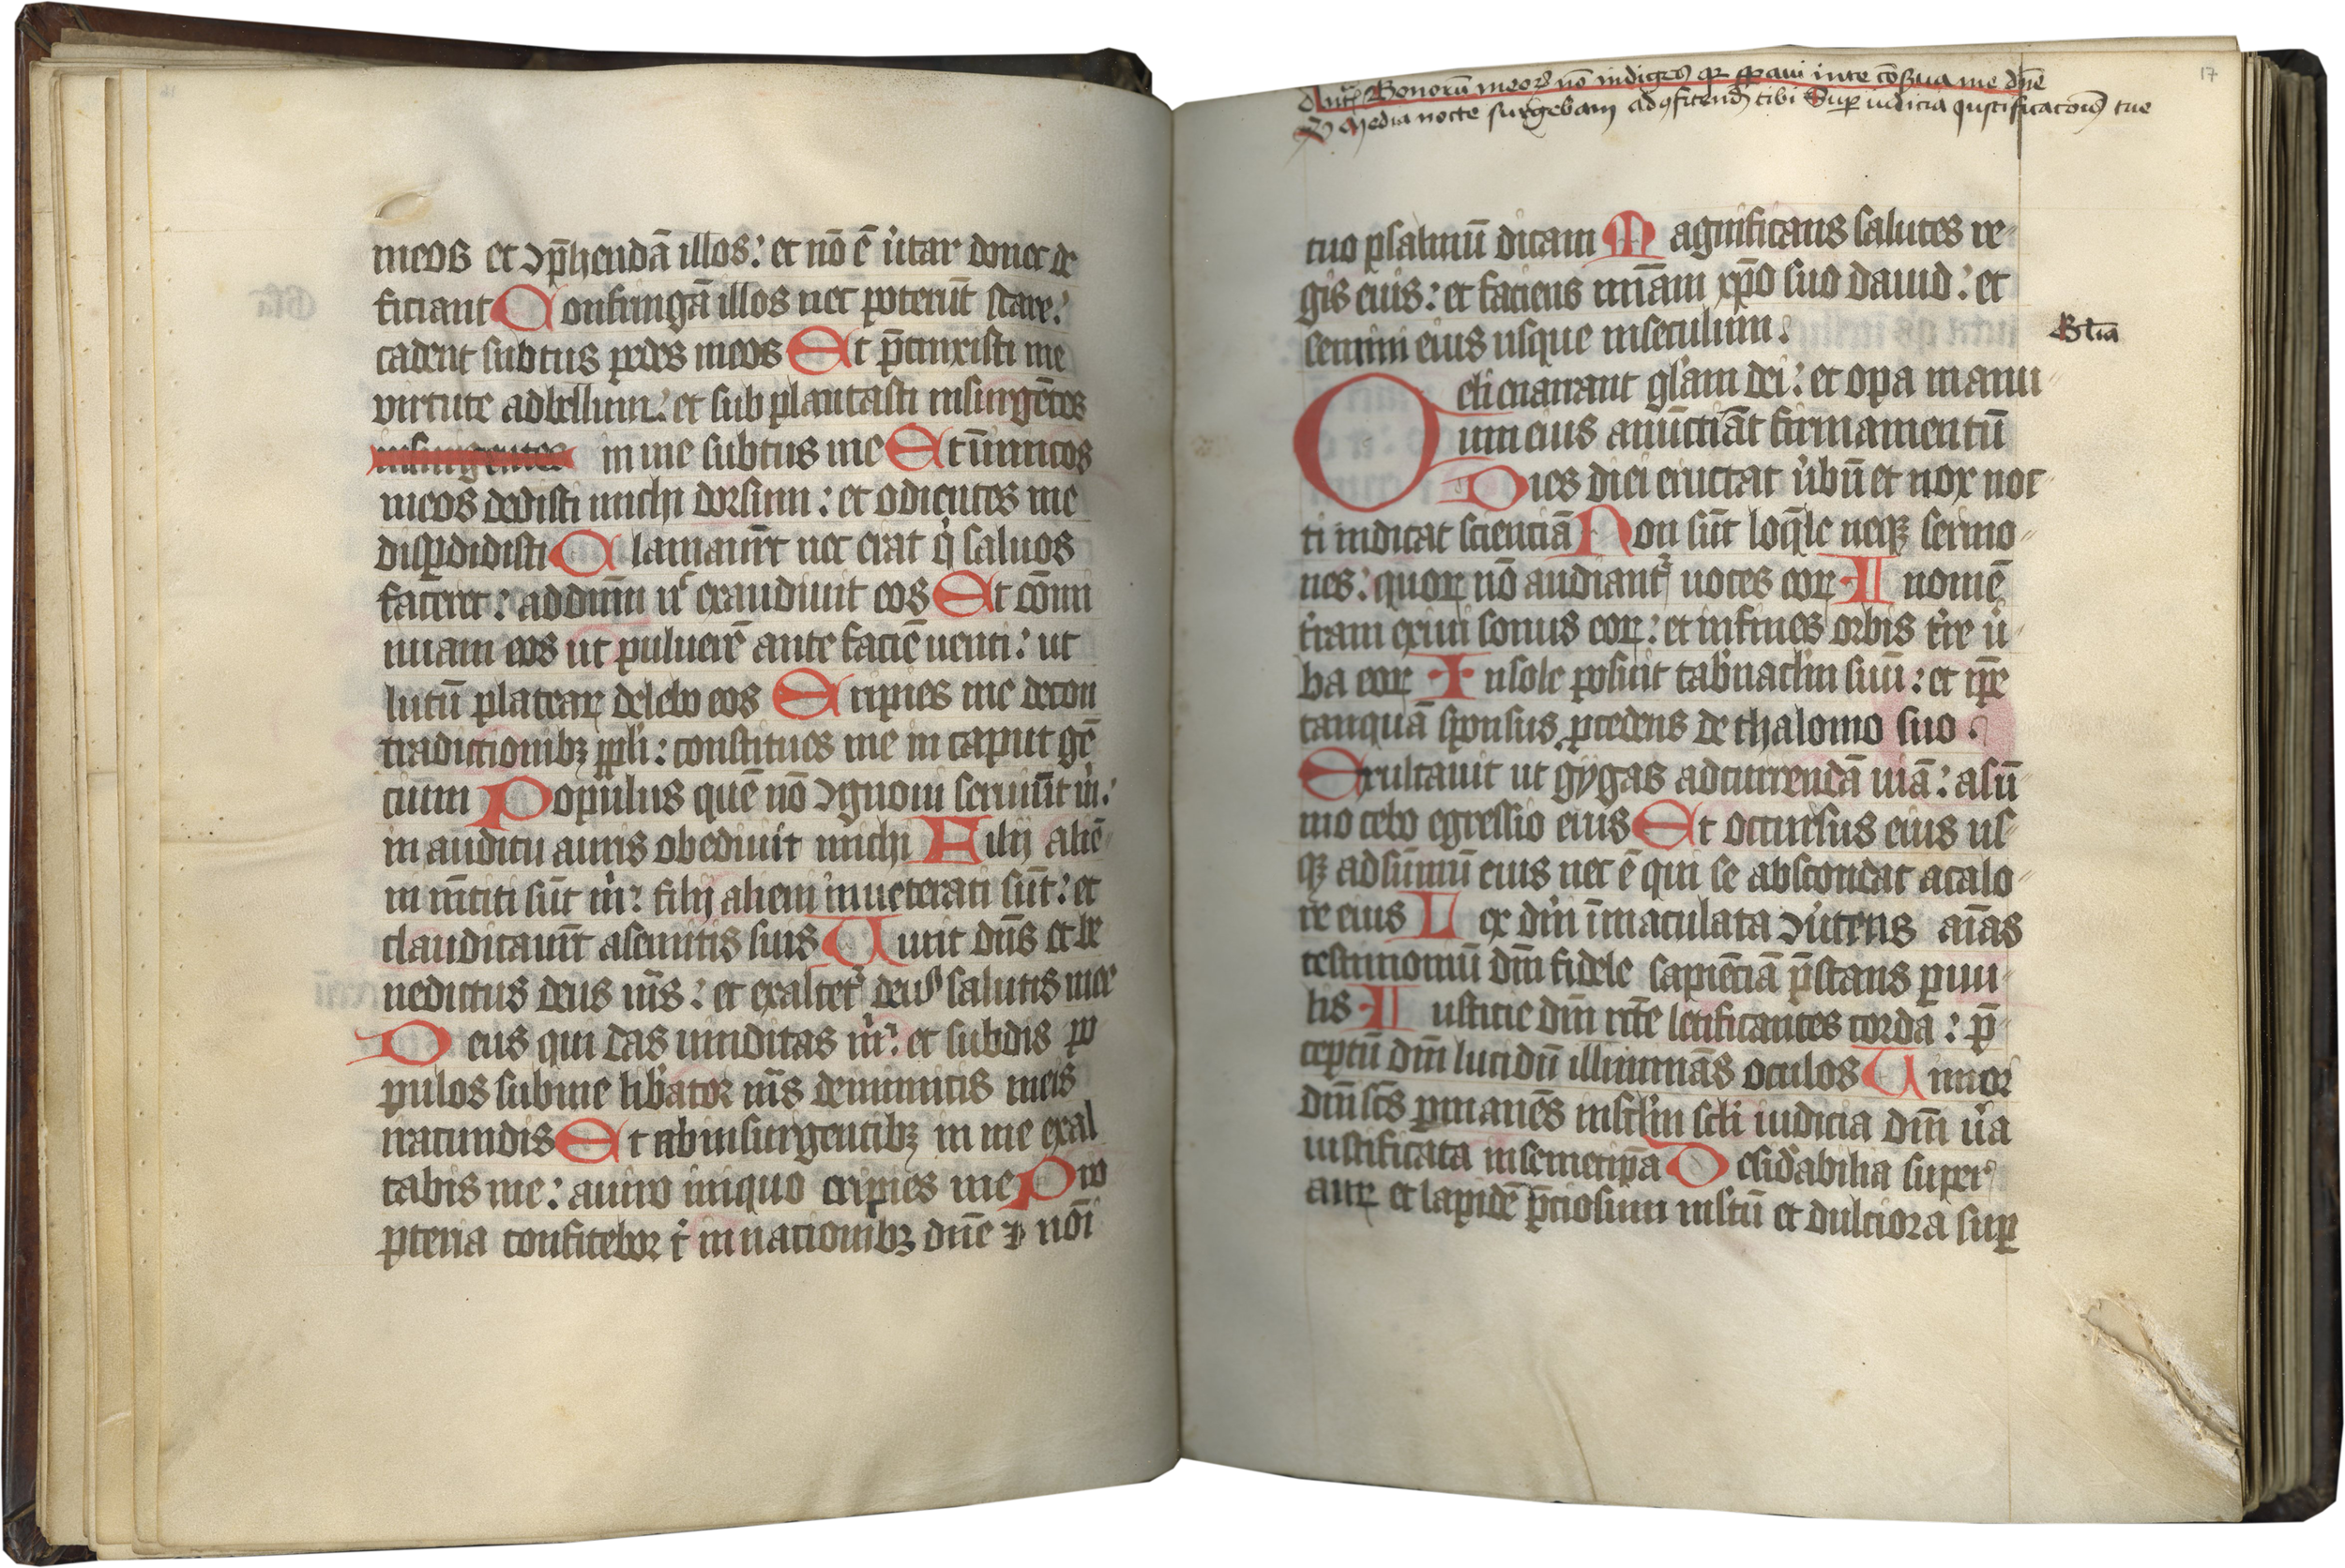 meos et ↄp̄hendā illos: et nō ē ůtar donec de
ficiant Confringā illos nec poterūt stare:
cadent subtus pedes meos Et p̄cinxisti me
virtute adbellum: et sub plantasti insurgētes
insurgentes in me subtus me Et inimicos
meos dedisti michi dorsum: et odientes me
disꝑdidisti Clamauer̄t nec erat q̇ saluos
faceret: addn̄m nͨ exaudiuit eos Et cōmi
nuam eos ut puluerē ante faciē uenti: ut
lutū plateaꝝ delebo eos Eripies me decon
tradictionibꝫ ppl̓i: constitues me in caput gē
cium Populus quē nō ↄgnoui seruiūt m̓:
in auditu auris obediuit michi Filij aliē
ni mētiti sūt m̓: filij alieni inueterati sūt: et
claudicauer̄t asemitis suis Uiuit dn̄s et be
nedictus deus m̄s: et exaltet᷑ deus salutis mee
Deus qui das uindictas m̓: et subdis po
pulos subme lib̓ator m̄s deinimicis meis
iracundis Et abinsurgentibꝫ in me exal
tabis me: auiro iniquo eripies me Pro
pterea confitebor t̓ in nationibꝫ dn̄e ⁊ nōi
Ant̄ Bonorū meoꝝ nō indiges qꝛ sperani inte cōserua me dn̄e
V̄ Media nocte surgebam adↄfitend tibi Suꝑ iudicia Justificacōis tue
17
tuo psalmū dicam Magnificans salutes re-
gis eius: et faciens mīam xp̄o suo dauid: et
semini eius usque inseculum.
Gl̄ia
Celi enarrant gl̓am dei: et oꝑa manu
um eius anūctiāt firmamentū
Dies diei eructat ůbū et nox noc
ti indicat scienciā Non sūt loq̄le neqꝫ sermo-
nes: quoꝝ nō audiant᷑ uoces eoꝝ In omē
t̓ram exiui sonus eoꝝ: et infines orbis t̓re ů-
ba eoꝝ Insole posuit tab̓nacl̓m suū: et ip̄e
tanquā sponsus ꝓcedens de thalomo suo.
Exultauit ut gygas adcurrendā uiā: asū
mo celo egressio eius Et occursus eius us-
qꝫ adsūmū eius nec ē qui se abscondat acalo-
re eius Lex dn̄i īmaculata ↄůtens aīas
testimoniū dn̄i fidele sapiēciā p̄stans ꝑuu-
lis Iusticie dn̄i rc̄te letificantes corda: p̄-
ceptū dn̄i lucidū illuminās oculos Timor
dn̄i sc̄s ꝑmanēs insc̄l̓m sc̄l̓i iudicia dn̄i ůa
iustificata insemetip̄a Desid̓abilia super
auꝝ et lapidē p̄ciosum ml̓tū et dulciora suꝑ